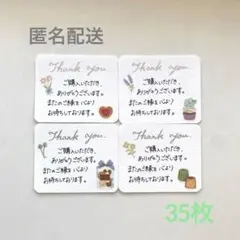 匿名配送
Thank you.
ご購入いただき、
ありがとうございます。
またのご縁を心より
お待ちしております。
Thank you.
ご購入いただき、
ありがとうございます。
またのご縁を心より
お待ちしております。
Thank you.
ご購入いただき、
ありがとうございます。
またのご縁を心より
お待ちしております。
Thank you.
ご購入いただき、
ありがとうございます。
またのご縁を心より
お待ちしております。
35枚